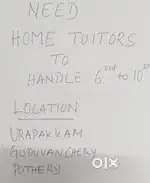 NEED
HOME TUITORS
TO
HANDLE 6 std to 10 st
LOCATION
URAPAKKAM
GUDUVANCHERY
POTHERY
olx